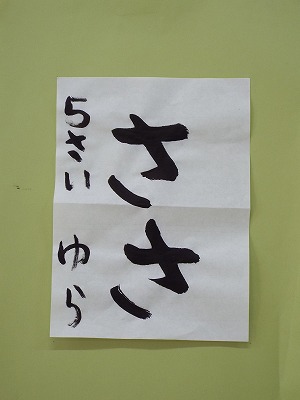 ささ
5さい ゆら